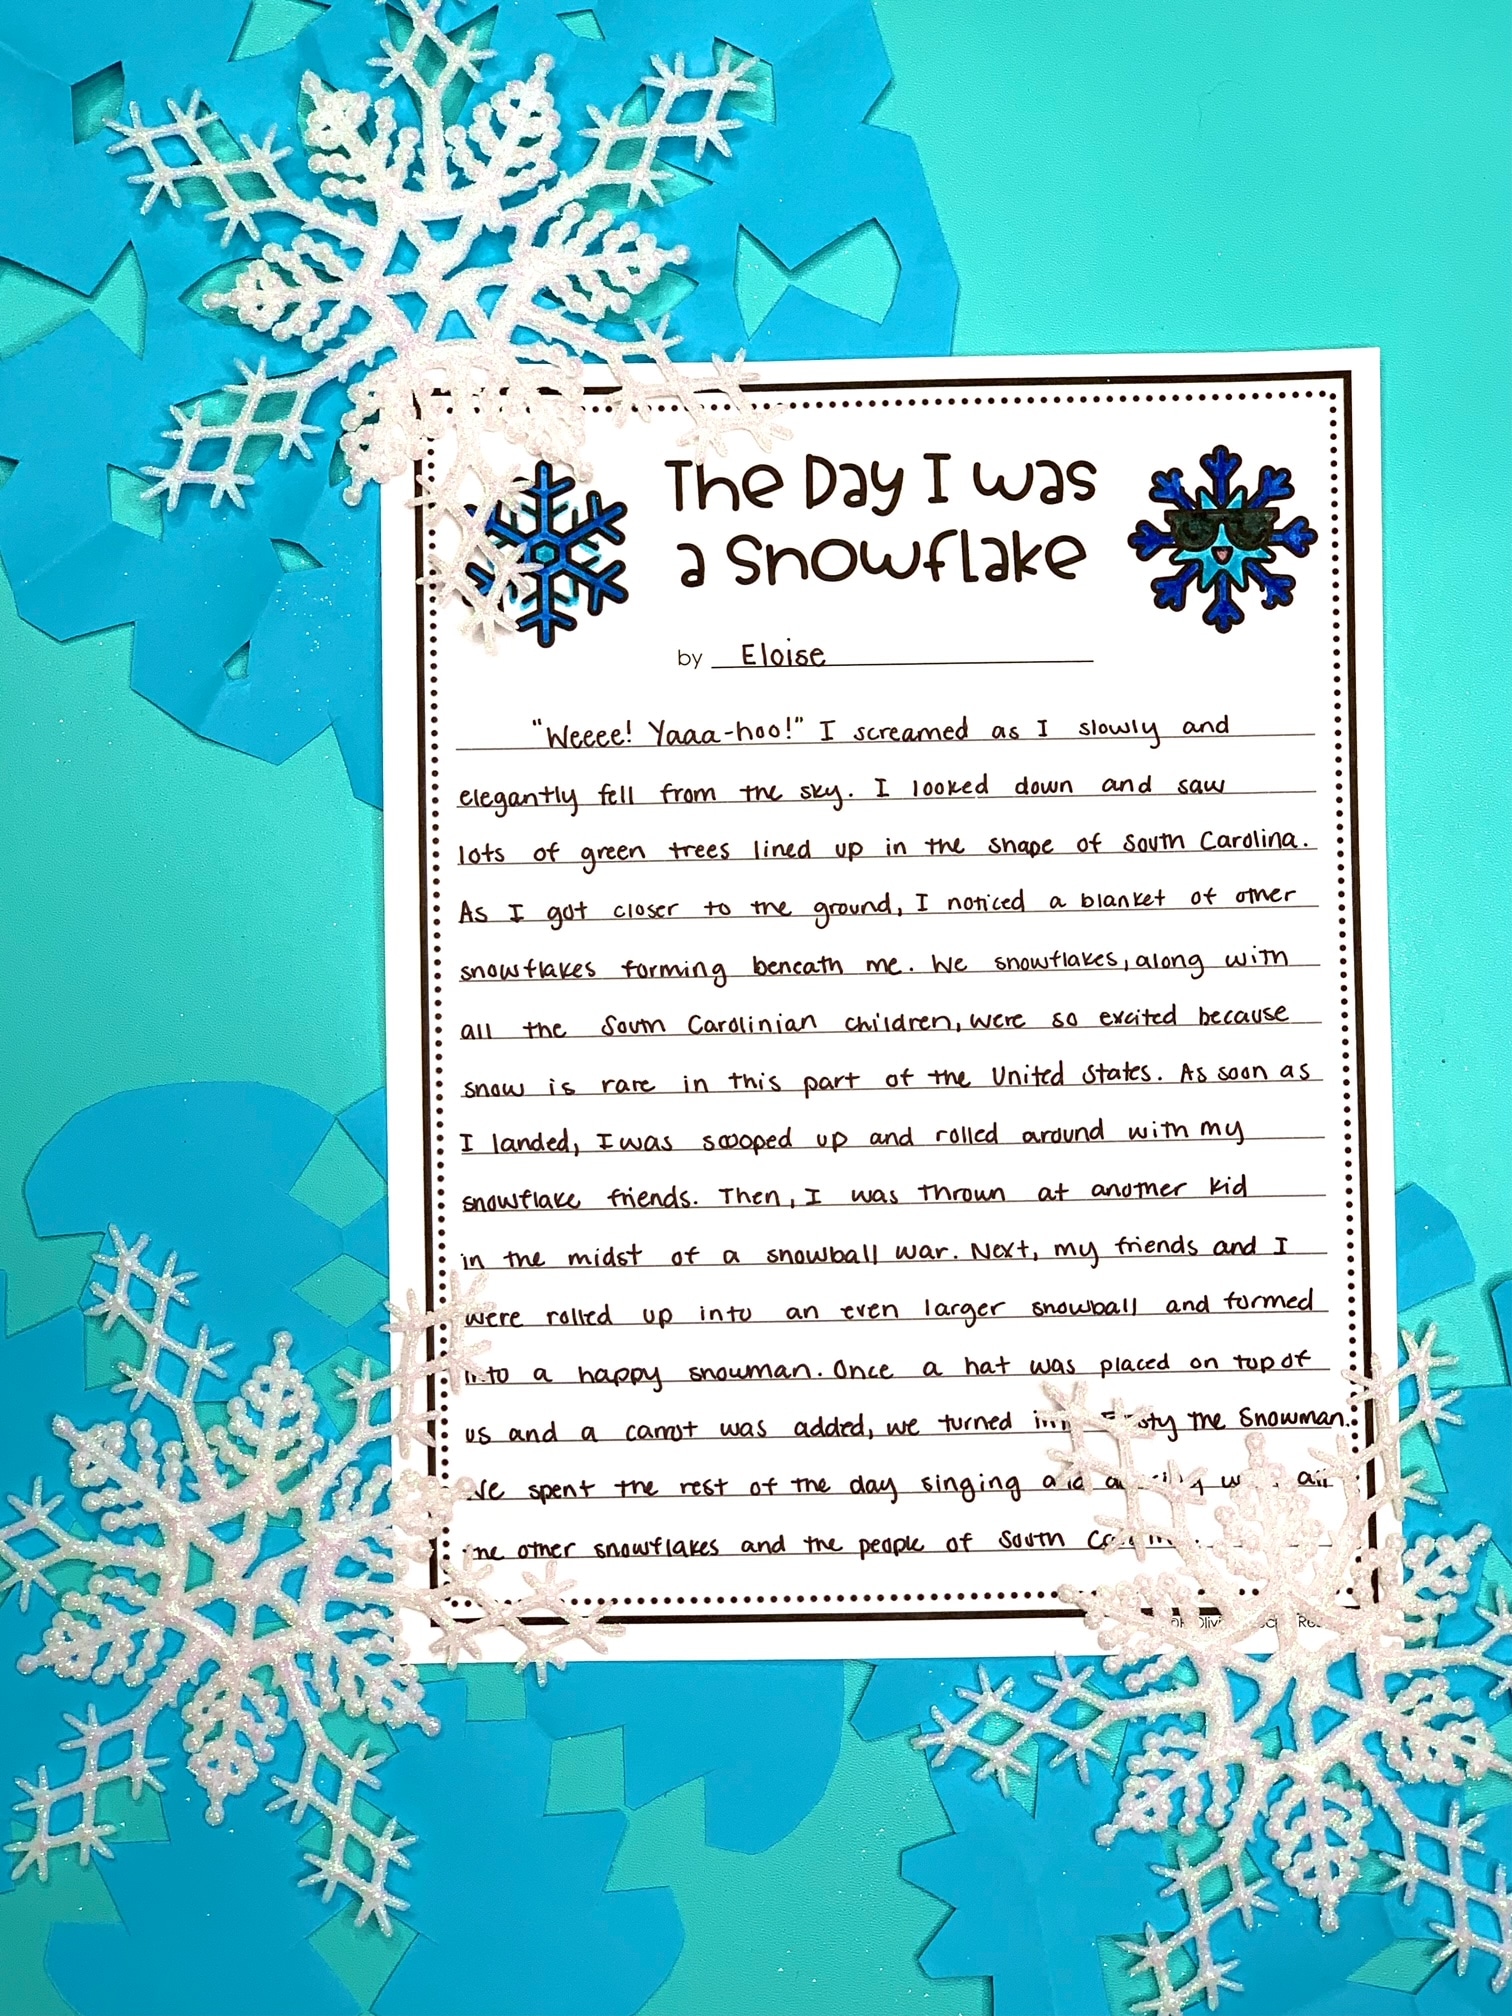 The Day I was
a Snowflake
by Eloise
"Weeee! Yaaa-hoo!" I screamed as I slowly and
elegantly fell from the sky. I looked down and saw
lots of green trees lined up in the shape of South Carolina.
As I got closer to the ground, I noticed a blanket of other
snowflakes forming beneath me. We snowflakes, along with
all the South Carolinian children, were so excited because
snow is rare in this part of the United States. As soon as
I landed, I was scooped up and rolled around with my
snowflake friends. Then, I was thrown at another kid
in the midst of a snowball war. Next, my friends and I
were rolled up into an even larger snowball and formed
into a happy snowman. Once a hat was placed on top of
us and a carrot was added, we turned the Snowman.
We spent the rest of the day singing
the other snowflakes and the people of South